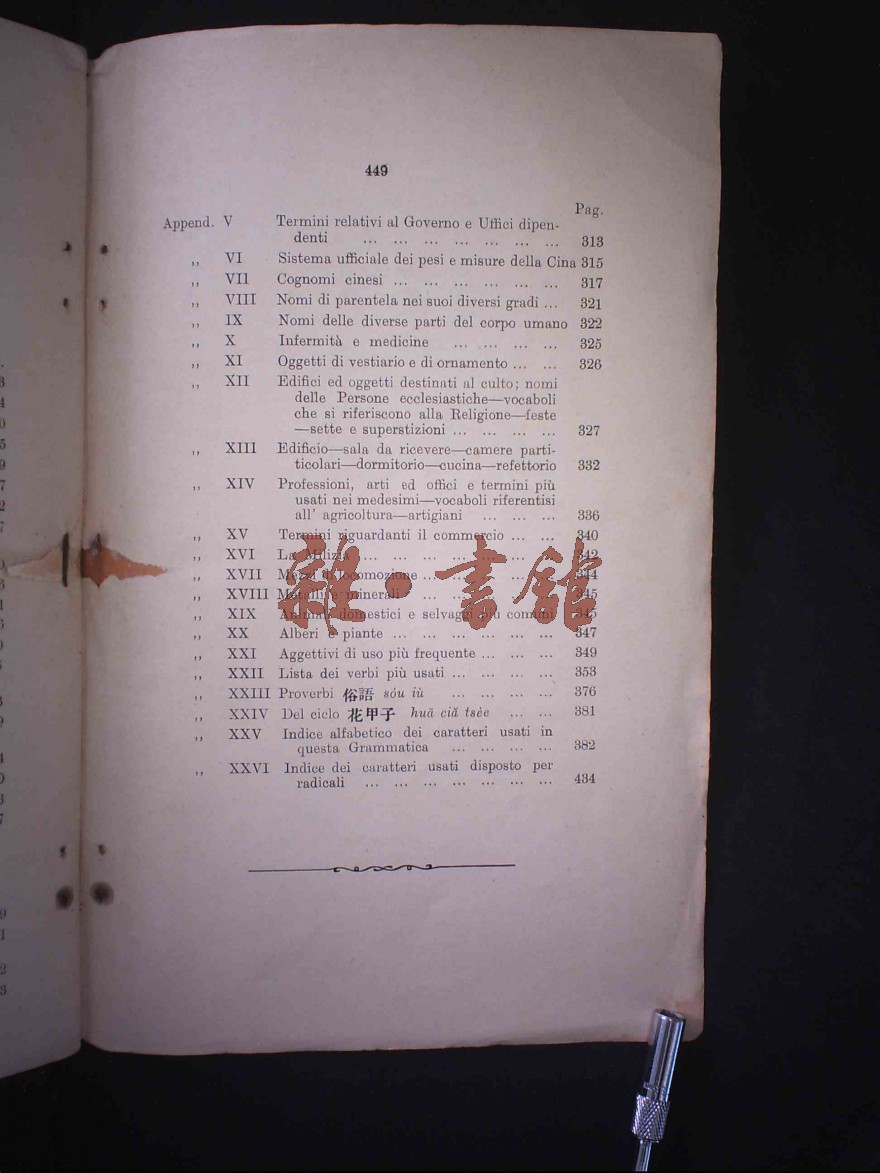 449
Pag.
Append. V Termini relativi al Governo e Uffici dipen-
denti ... ... ... ... ... ... ... 313
,, VI Sistema ufficiale dei pesi e misure della Cina 315
,, VII Cognomi cinesi ... ... ... ... ... ... 317
,, VIII Nomi di parentela nei suoi diversi gradi ... 321
,, IX Nomi delle diverse parti del corpo umano 322
,, X Infermità e medicine ... ... ... ... 325
,, XI Oggetti di vestiario e di ornamento ... ... 326
,, XII Edifici ed oggetti destinati al culto; nomi
delle Persone ecclesiastiche—vocaboli
che si riferiscono alla Religione—feste
—sette e superstizioni ... ... ... ... 327
,, XIII Edificio—sala da ricevere—camere parti-
ticolari—dormitorio—cucina—refettorio 332
,, XIV Professioni, arti ed offici e termini più
usati nei medesimi—vocaboli riferentisi
all' agricoltura—artigiani ... ... ... 336
,, XV Termini riguardanti il commercio ... ... 340
,, XVI La Milizia ... ... ... ... ... ... ... 342
,, XVII Mezzi di locomozione ... ... ... ... ... 344
,, XVIII Metalli e minerali ... ... ... ... ... 345
,, XIX Animali domestici e selvaggi più comuni 345
,, XX Alberi e piante ... ... ... ... ... ... 347
,, XXI Aggettivi di uso più frequente ... ... ... 349
,, XXII Lista dei verbi più usati ... ... ... ... 353
,, XXIII Proverbi 俗語 sóu iù ... ... ... ... 376
,, XXIV Del ciclo 花甲子 huā ciă tsèe ... ... 381
,, XXV Indice alfabetico dei caratteri usati in
questa Grammatica ... ... ... ... 382
,, XXVI Indice dei caratteri usati disposto per
radicali ... ... ... ... ... ... ... 434
雜·書館